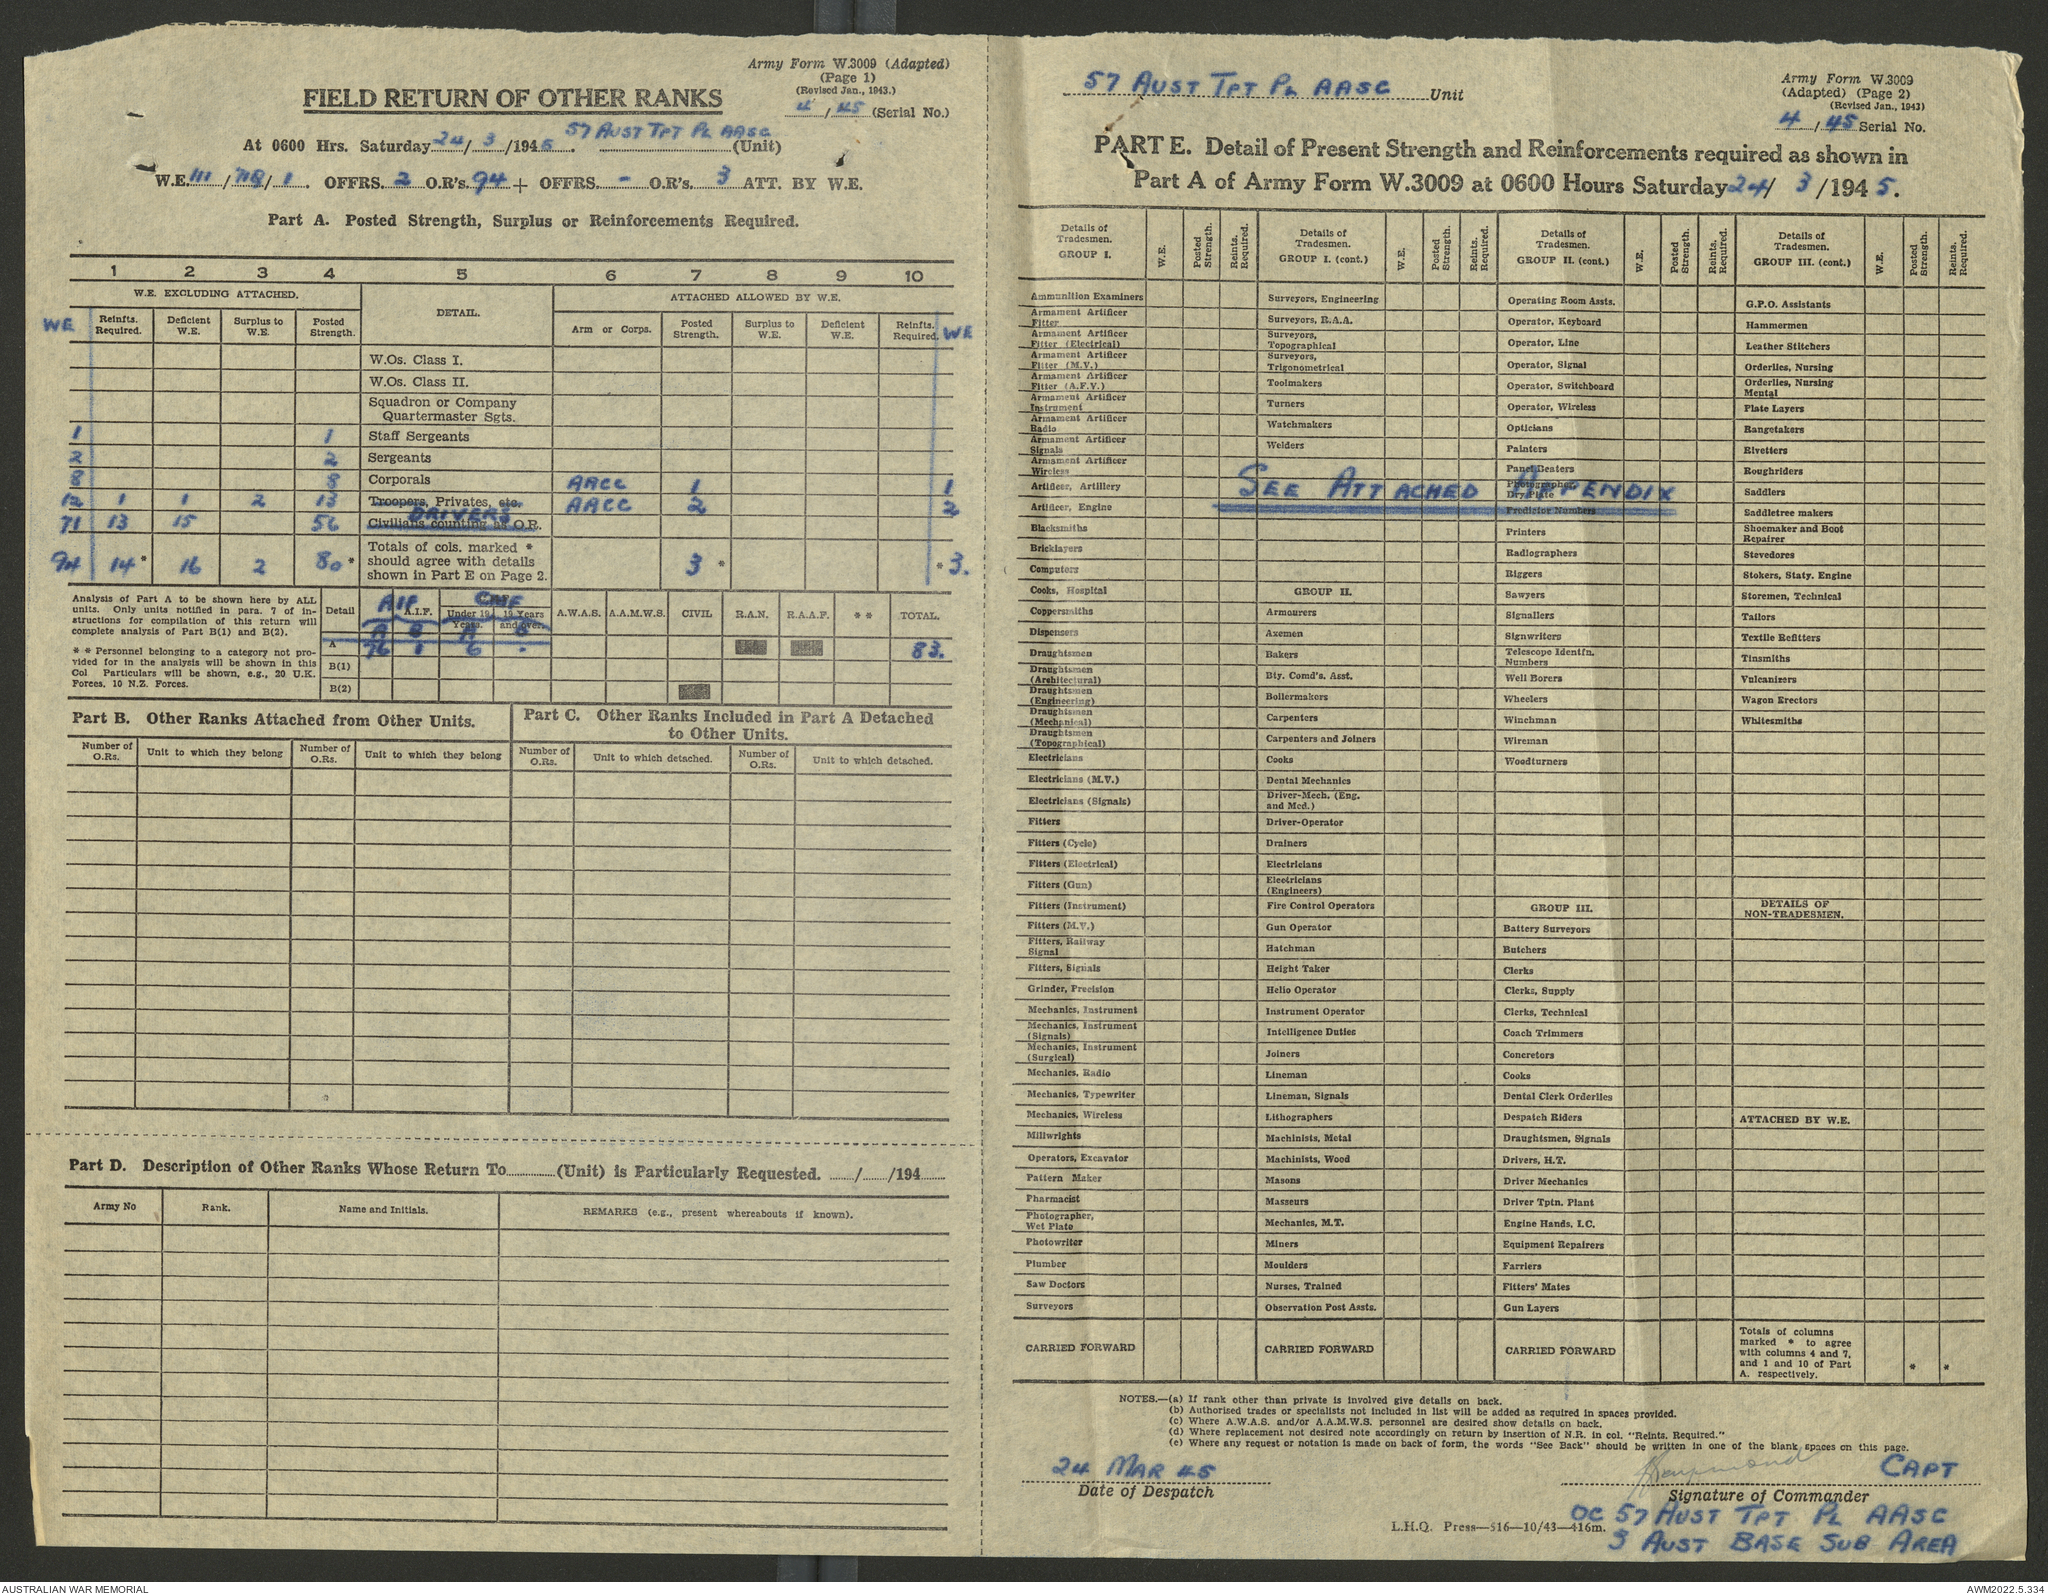 Army Form W.3009 (Adapted)
(Page 1)
(Revised Jan., 1943.)
FIELD RETURN OF OTHER RANKS
4 / 45 (Serial No.)
At 0600 Hrs. Saturday 24 / 3 /1945. 57 AUST TPT PL AASC (Unit)
W.E. 111 / / 1 . OFFRS. 2 O.R's. 94 + OFFRS. - O.R's. 3 ATT. BY W.E.
Part A. Posted Strength, Surplus or Reinforcements Required.
1 2 3 4 5 6 7 8 9 10
W.E. EXCLUDING ATTACHED. DETAIL. ATTACHED ALLOWED BY W.E.
WE Reinfts. Required. Deficient W.E. Surplus to W.E. Posted Strength. Arm or Corps. Posted Strength. Surplus to W.E. Deficient W.E. Reinfts. Required. WE
W.Os. Class I.
W.Os. Class II.
Squadron or Company
Quartermaster Sgts.
1 1 Staff Sergeants
2 2 Sergeants
8 8 Corporals AACC 1 1
12 1 1 2 13 Troopers, Privates, etc. AACC 2 2
71 13 15 56 DRIVERS Civilians counting as O.R.
94 14* 16 2 80* Totals of cols. marked * should agree with details shown in Part E on Page 2. 3 * * 3.
Analysis of Part A to be shown here by ALL
units. Only units notified in para. 7 of in-
structions for compilation of this return will
complete analysis of Part B(1) and B(2).
* * Personnel belonging to a category not pro-
vided for in the analysis will be shown in this
Col Particulars will be shown, e.g., 20 U.K.
Forces, 10 N.Z. Forces.
Detail AIF A.I.F. CMF Under 19 Years. 19 Years and over. A.W.A.S. A.A.M.W.S. CIVIL R.A.N. R.A.A.F. * * TOTAL.
A B A B
A 76 1 6 - 83.
B(1)
B(2)
Part B. Other Ranks Attached from Other Units.
Part C. Other Ranks Included in Part A Detached
to Other Units.
Number of O.Rs. Unit to which they belong Number of O.Rs. Unit to which they belong Number of O.Rs. Unit to which detached. Number of O.Rs. Unit to which detached.
Part D. Description of Other Ranks Whose Return To............(Unit) is Particularly Requested. ....../....../194......
Army No Rank. Name and Initials. REMARKS (e.g., present whereabouts if known).
57 AUST TPT PL AASC Unit
Army Form W.3009
(Adapted) (Page 2)
(Revised Jan., 1943)
4 / 45 Serial No.
PART E. Detail of Present Strength and Reinforcements required as shown in
Part A of Army Form W.3009 at 0600 Hours Saturday 24/ 3 /1945.
Details of Tradesmen. GROUP I. W.E. Posted Strength. Reints. Required.
Ammunition Examiners
Armament Artificer Fitter
Armament Artificer Fitter (Electrical)
Armament Artificer Fitter (M.V.)
Armament Artificer Fitter (A.F.V.)
Armament Artificer Instrument
Armament Artificer Radio
Armament Artificer Signals
Armament Artificer Wireless
Artificer, Artillery
Artificer, Engine
Blacksmiths
Bricklayers
Computers
Cooks, Hospital
Coppersmiths
Dispensers
Draughtsmen
Draughtsmen (Architectural)
Draughtsmen (Engineering)
Draughtsmen (Mechanical)
Draughtsmen (Topographical)
Electricians
Electricians (M.V.)
Electricians (Signals)
Fitters
Fitters (Cycle)
Fitters (Electrical)
Fitters (Gun)
Fitters (Instrument)
Fitters (M.V.)
Fitters, Railway Signal
Fitters, Signals
Grinder, Precision
Mechanics, Instrument
Mechanics, Instrument (Signals)
Mechanics, Instrument (Surgical)
Mechanics, Radio
Mechanics, Typewriter
Mechanics, Wireless
Millwrights
Operators, Excavator
Pattern Maker
Pharmacist
Photographer, Wet Plate
Photowriter
Plumber
Saw Doctors
Surveyors
CARRIED FORWARD
Details of Tradesmen. GROUP I. (cont.) W.E. Posted Strength. Reints. Required.
Surveyors, Engineering
Surveyors, R.A.A.
Surveyors, Topographical
Surveyors, Trigonometrical
Toolmakers
Turners
Watchmakers
Welders
SEE ATTACHED APPENDIX
GROUP II.
Armourers
Axemen
Bakers
Bty. Comd's. Asst.
Boilermakers
Carpenters
Carpenters and Joiners
Cooks
Dental Mechanics
Driver-Mech. (Eng. and Med.)
Driver-Operator
Drainers
Electricians
Electricians (Engineers)
Fire Control Operators
Gun Operator
Hatchman
Height Taker
Helio Operator
Instrument Operator
Intelligence Duties
Joiners
Lineman
Lineman, Signals
Lithographers
Machinists, Metal
Machinists, Wood
Masons
Masseurs
Mechanics, M.T.
Miners
Moulders
Nurses, Trained
Observation Post Assts.
CARRIED FORWARD
Details of Tradesmen. GROUP II. (cont.) W.E. Posted Strength. Reints. Required.
Operating Room Assts.
Operator, Keyboard
Operator, Line
Operator, Signal
Operator, Switchboard
Operator, Wireless
Opticians
Painters
Panel Beaters
Photographer, Dry Plate
Predictor Numbers
Printers
Radiographers
Riggers
Sawyers
Signallers
Signwriters
Telescope Identfn. Numbers
Well Borers
Wheelers
Winchman
Wireman
Woodturners
GROUP III.
Battery Surveyors
Butchers
Clerks
Clerks, Supply
Clerks, Technical
Coach Trimmers
Concretors
Cooks
Dental Clerk Orderlies
Despatch Riders
Draughtsmen, Signals
Drivers, H.T.
Driver Mechanics
Driver Tptn. Plant
Engine Hands, I.C.
Equipment Repairers
Farriers
Fitters' Mates
Gun Layers
CARRIED FORWARD
Details of Tradesmen. GROUP III. (cont.) W.E. Posted Strength. Reints. Required.
G.P.O. Assistants
Hammermen
Leather Stitchers
Orderlies, Nursing
Orderlies, Nursing Mental
Plate Layers
Rangetakers
Rivetters
Roughriders
Saddlers
Saddletree makers
Shoemaker and Boot Repairer
Stevedores
Stokers, Staty. Engine
Storemen, Technical
Tailors
Textile Refitters
Tinsmiths
Vulcanizers
Wagon Erectors
Whitesmiths
DETAILS OF NON-TRADESMEN.
ATTACHED BY W.E.
Totals of columns marked * to agree with columns 4 and 7, and 1 and 10 of Part A. respectively. * *
NOTES.—(a) If rank other than private is involved give details on back.
(b) Authorised trades or specialists not included in list will be added as required in spaces provided.
(c) Where A.W.A.S. and/or A.A.M.W.S. personnel are desired show details on back.
(d) Where replacement not desired note accordingly on return by insertion of N.R. in col. "Reints. Required."
(e) Where any request or notation is made on back of form, the words "See Back" should be written in one of the blank spaces on this page.
24 MAR 45
Date of Despatch
CAPT
Signature of Commander
OC 57 AUST TPT PL AASC
3 AUST BASE SUB AREA
L.H.Q. Press—516—10/43—416m.
AUSTRALIAN WAR MEMORIAL
AWM2022.5.334